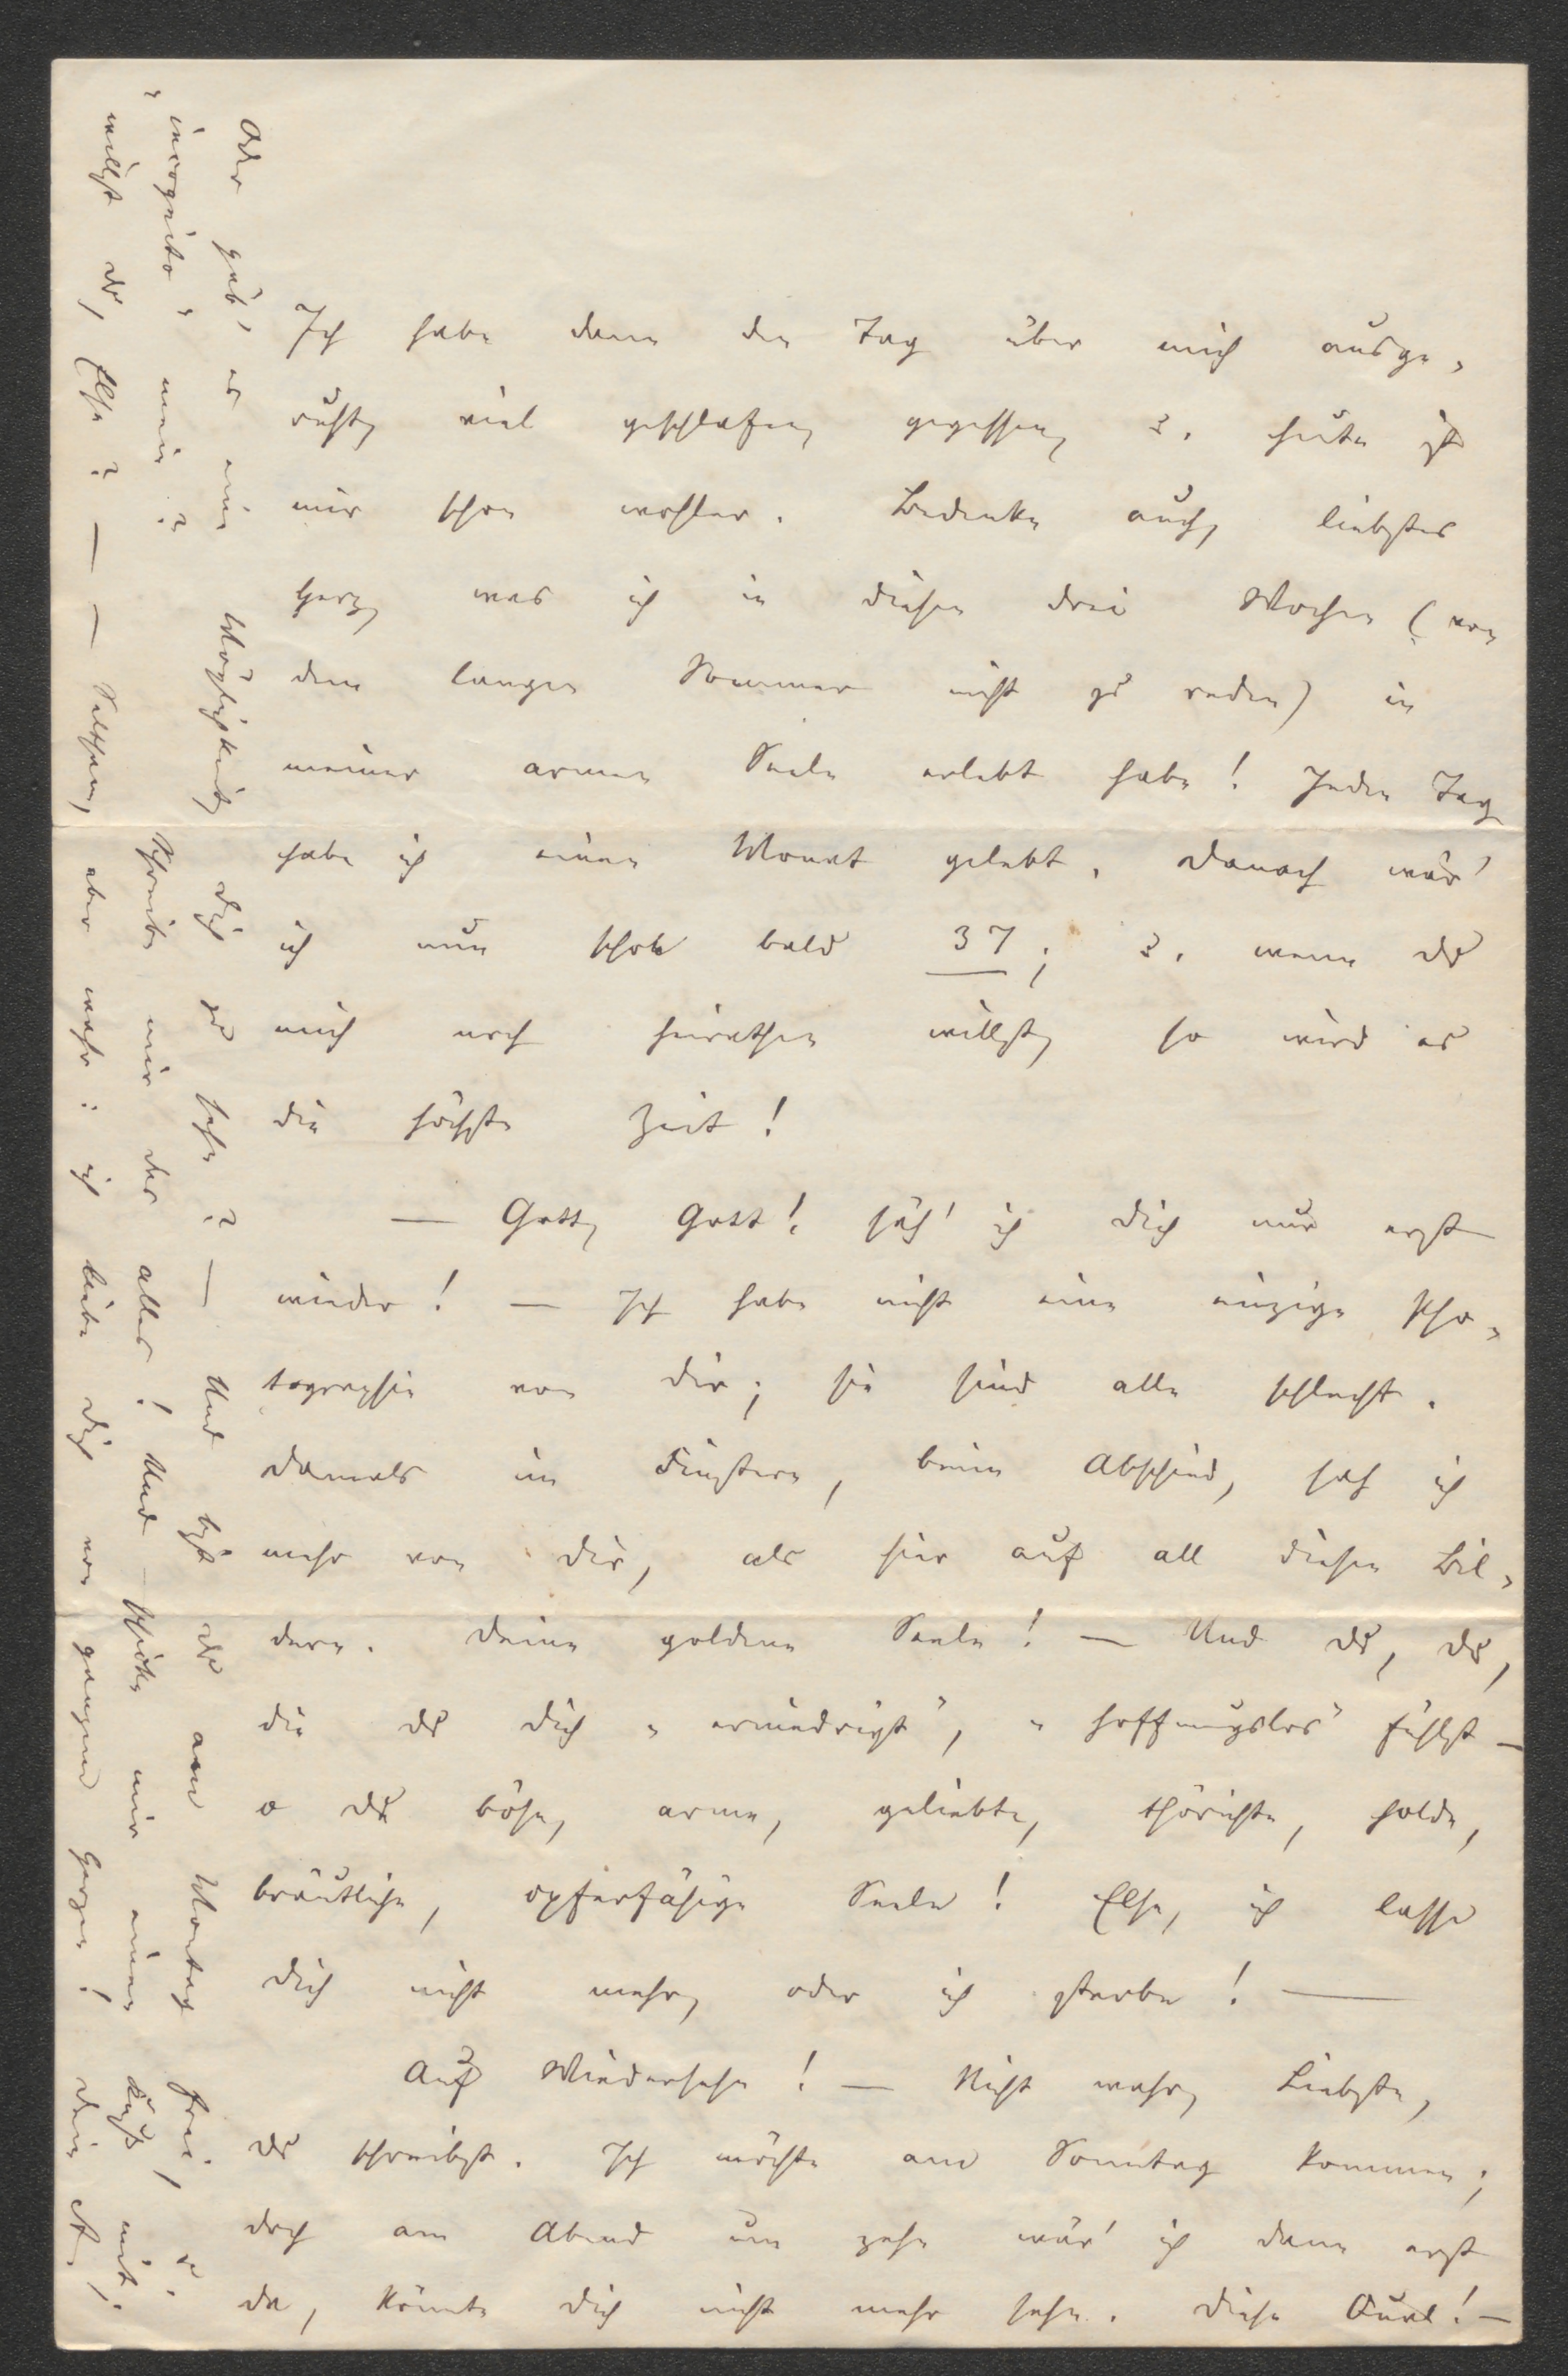 Ich habe dann den Tag über mich ausge-
ruht, viel geschlafen, gegessen, u. heute ist
mir schon wohler. Bedenke auch, liebstes
Herz, was ich in diesen drei Wochen (von
dem langen Sommer nicht zu reden) in
meiner armen Seele erlebt habe! Jeden Tag
habe ich einen Monat gelebt. Danach wär'
ich nun schon bald 37; u. wenn du
mich noch heirathen willst, so wird es
die höchste Zeit!
— Gott, Gott! säh' ich dich nur erst
wieder! — Ich habe nicht eine einzige Pho-
tographie von dir; sie sind alle schlecht.
Damals im Finstern, beim Abschied, sah ich
mehr von dir, als hier auf all diesen Bil-
dern. Deine goldene Seele! — Und du, du,
die du dich „erniedrigt", „hoffnungslos" fühlst —
o du böse, arme, geliebte, thörichte, holde,
bräutliche, opferfähige Seele! Else, ich lasse
dich nicht mehr, oder ich sterbe! —
Auf Wiedersehn! — Nicht wahr, Liebste,
du schreibst. Ich möchte am Sonntag kommen;
doch am Abend um zehn wär' ich dann erst
da, könnte dich nicht mehr sehn. Diese Qual! —
Oder gäb' es eine Möglichkeit, dich zu sehn? — Und bist du am Montag frei, u.
„incognito" mein? Schreibe mir das alles! Und schicke mir einen Kuß mit,
willst du, Else? — — Seltsam, aber wahr: ich liebe dich von ganzem Herzen!
Dein A.